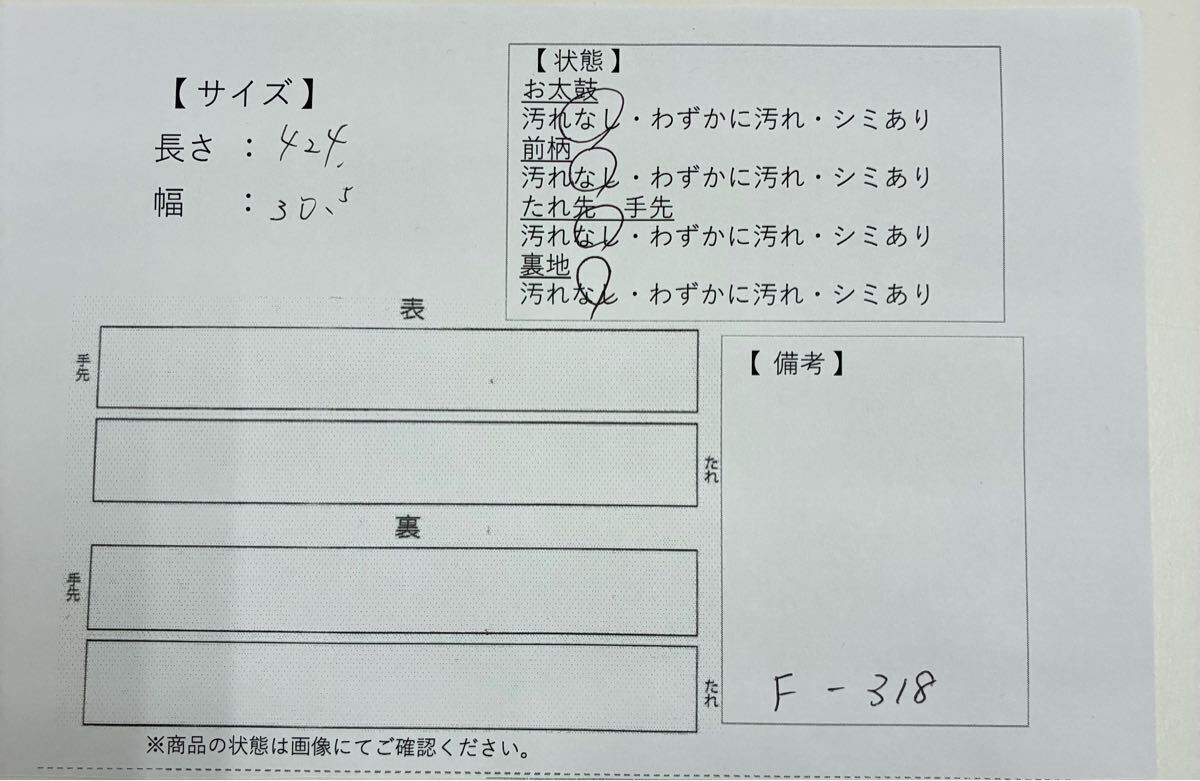 【 サイズ 】
長さ ： 424.
幅 ： 30.5
【 状態 】
お太鼓
汚れなし・わずかに汚れ・シミあり
前柄
汚れなし・わずかに汚れ・シミあり
たれ先 手先
汚れなし・わずかに汚れ・シミあり
裏地
汚れなし・わずかに汚れ・シミあり
表
手先
たれ
裏
手先
たれ
【 備考 】
F - 318
※商品の状態は画像にてご確認ください。